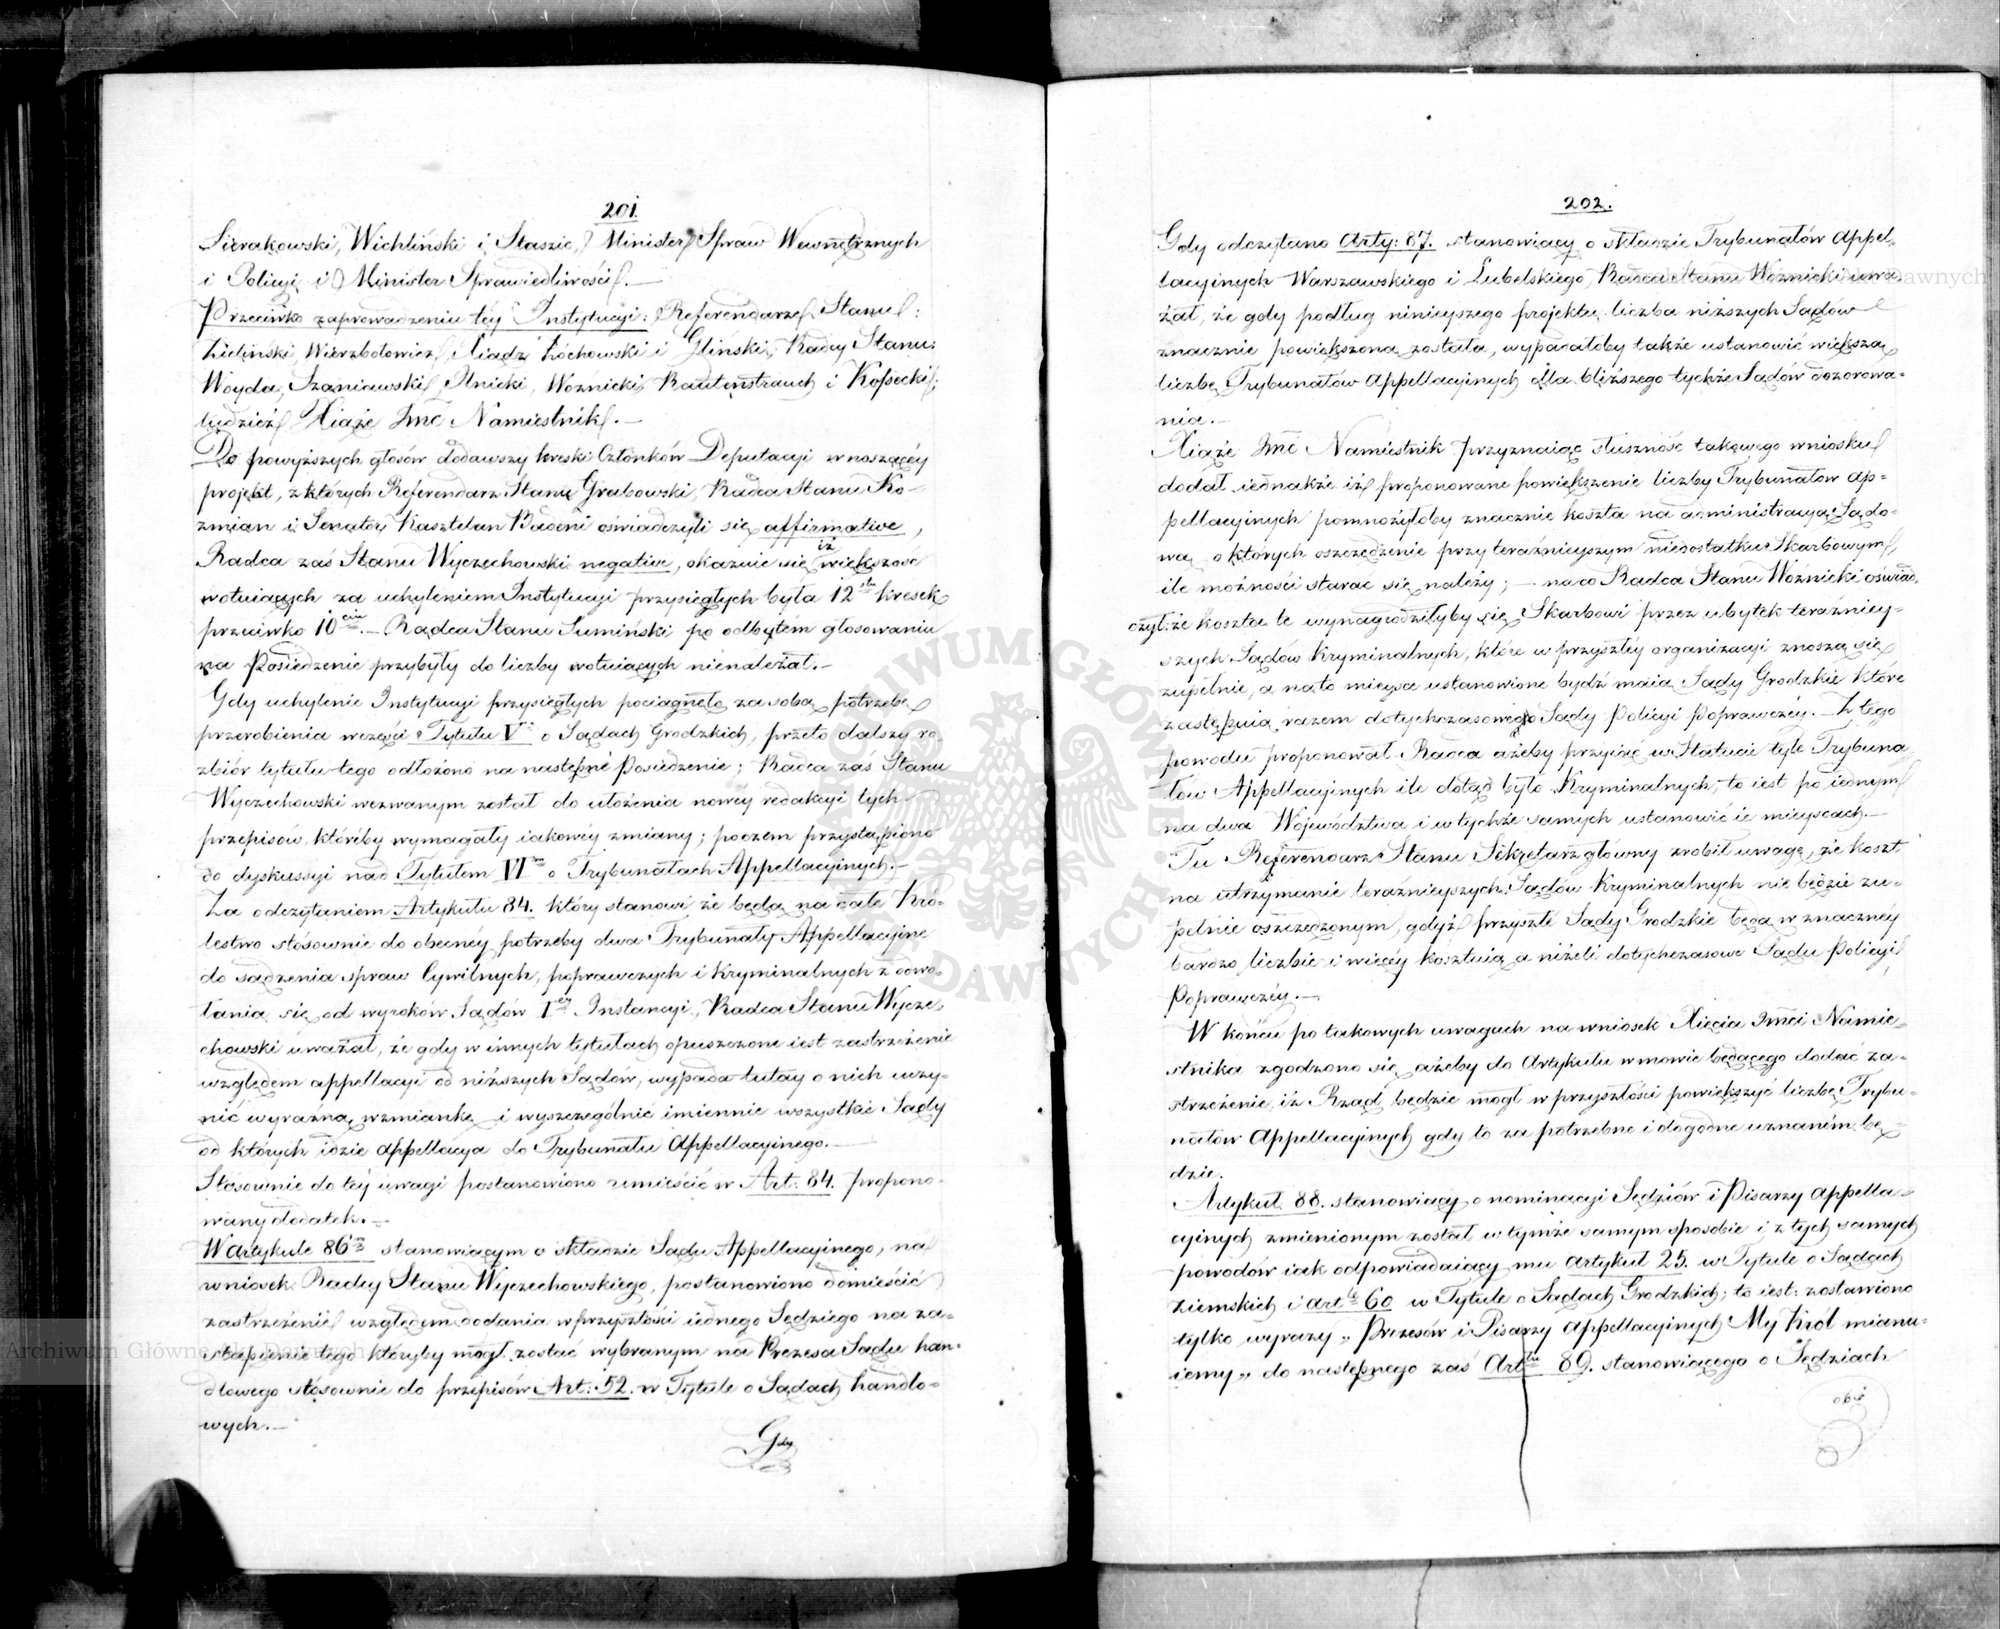 201.
Sierakowski, Wichliński i Staszic, Minister Spraw Wewnętrznych
i Policyi i Minister Sprawiedliwości.—
Przeciwko zaprowadzeniu téy Instytucyi: Referendarze Stanu:
Zieliński, Wierzbołowicz, Xiądz Łochowski i Gliński, Radcy Stanu:
Woyda, Szaniawski, Ilnicki, Woźnicki, Rautenstrauch i Kossecki;
tudzież Xiąże Jmć Namiestnik.—
Do powyższych głosów dodawszy kreski Członków Deputacyi wnoszącéy
projekt, z których Referendarz Stanu Grabowski, Radca Stanu Ko-
zmian i Senator Kasztelan Badeni oświadczyli się affirmative,
Radca zaś Stanu Wyczechowski negative, okazuie się iż większość
wotuiących za uchyleniem Instytucyi przysięgłych była 12stu kresek
przeciwko 10ciu.— Radca Stanu Sumiński po odbytem głosowaniu
na Posiedzenie przybyły do liczby wotuiących nienależał.—
Gdy uchylenie Instytucyi przysięgłych pociągnęło za sobą potrzebę
przerobienia w części Tytułu V° o Sądach Grodzkich, przeto dalszy ro-
zbiór tytułu tego odłożono na następne Posiedzenie; Radca zaś Stanu
Wyczechowski wezwanym został do ułożenia nowéy redakcyi tych
przepisów, któreby wymagały iakowéy zmiany; poczem przystąpiono
do dyskussyi nad Tytułem VIm o Trybunałach Appellacyinych.—
Za odczytaniem Artykułu 84. który stanowi że będą na całe Kró-
lestwo stósownie do obecnéy potrzeby dwa Trybunały Appellacyine
do sądzenia spraw Cywilnych, poprawczych i Kryminalnych z odwo-
łania się od wyroków Sądów Iéy Instancyi, Radca Stanu Wycze-
chowski uważał, że gdy w innych tytułach opuszczone iest zastrzeżenie
względem appellacyi od niższych Sądów, wypada tutay o nich uczy-
nić wyraźną wzmiankę i wyszczególnić imiennie wszystkie Sądy
od których idzie appellacya do Trybunału Appellacyinego.—
Stosownie do téy uwagi postanowiono umieścić w Art: 84. propono-
wany dodatek.—
W artykule 86m stanowiącym o składzie Sądu Appellacyinego, na
wniosek Radcy Stanu Wyczechowskiego, postanowiono domieścić
zastrzeżenie względem dodania w przyszłości iednego Sędziego na za-
stąpienie tego któryby mógł zostać wybranym na Prezesa Sądu han-
dlowego stósownie do przepisów Art: 52. w Tytule o Sądach handlo-
wych.—
Gdy
202.
Gdy odczytano Arty: 87. stanowiący o składzie Trybunałów Appel-
lacyinych Warszawskiego i Lubelskiego, Radca Stanu Woźnicki uwa-
żał, że gdy podług ninieyszego projektu liczba niższych Sądów
znacznie powiększona została, wypadałoby także ustanowić większą
liczbę Trybunałów Appellacyinych dla bliższego tychże Sądów dozorowa-
nia.—
Xiąże Jmć Namiestnik przyznaiąc słuszność takowego wniosku
dodał iednakże iż proponowane powiększenie liczby Trybunałów Ap-
pellacyinych pomnożyłoby znacznie koszta na administracyą Sądo-
wą, o których oszczędzenie przy teraźnieyszym niedostatku Skarbowym,
ile możności starać się należy; — na co Radca Stanu Woźnicki oświad-
czył: że koszta te wynagrodziłyby się Skarbowi przez ubytek teraźniey-
szych Sądów Kryminalnych, które w przyszłéy organizacyi znoszą się
zupełnie, a na to mieysce ustanowione bydź maią Sądy Grodzkie które
zastąpią razem dotychczasowe Sądy Policyi Poprawczéy.— Z tego
powodu proponował Radca ażeby przyiąć w Statucie tyle Trybuna-
łów Appellacyinych ile dotąd było Kryminalnych, to iest po iednym
na dwa Województwa i w tychże samych ustanowić ie mieyscach.—
Tu Referendarz Stanu Sekretarz główny zrobił uwagę, że koszt
na utrzymanie teraźnieyszych Sądów Kryminalnych nie będzie zu-
pełnie oszczędzonym, gdyż przyszłe Sądy Grodzkie będą w znacznéy
bardzo liczbie i więcéy kosztuią a niżeli dotychczasowe Sądu Policyi
Poprawczéy.—
W końcu po takowych uwagach na wniosek Xięcia Jmci Namie-
stnika zgodzono się ażeby do Artykułu w mowie będącego dodać za-
strzeżenie, iż Rząd będzie mógł w przyszłości powiększyć liczbę Trybu-
nałów Appellacyinych gdy to za potrzebne i dogodne uznaném bę-
dzie.
Artykuł 88. stanowiący o nominacyi Sędziów i Pisarzy Appella-
cyinych zmienionym został w tymże samym sposobie i z tych samych
powodów iak odpowiadaiący mu Artykuł 25. w Tytule o Sądach
Ziemskich i Artł 60 w Tytule o Sądach Grodzkich; to iest: zostawiono
tylko wyrazy „ Prezesów i Pisarzy Appellacyinych My Król mianu-
iemy „ do następnego zaś Arttu 89. stanowiącego o Sędziach
obie
ARCHIWUM GŁÓWNE AKT DAWNYCH